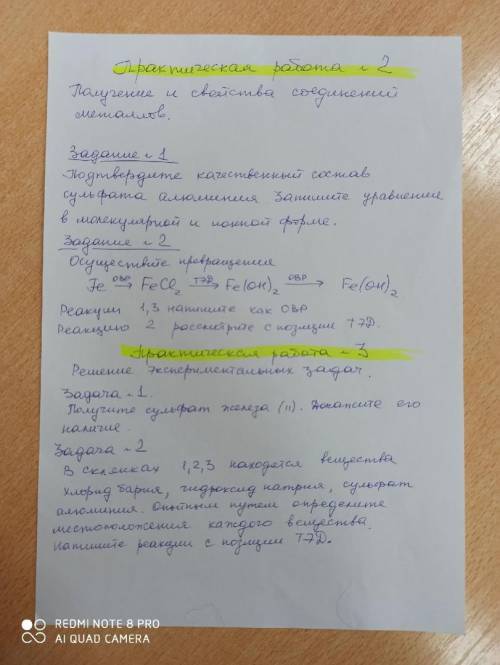 Практическая работа ~2
Получение и свойства соединений
металлов.
Задание ~1
Подтвердите качественный состав
сульфата алюминия Запишите уравнения
в молекулярной и ионной форме.
Задание ~2
Осуществите превращения
Fe ОВР→ FeCl2 ТЭД→ Fe(OH)2 ОВР→ Fe(OH)2
Реакции 1,3 напишите как ОВР
Реакцию 2 рассмотрите с позиции ТЭД.
Практическая работа ~3
Решение экспериментальных задач.
Задача ~1.
Получите сульфат железа (II). Докажите его
наличие.
Задача ~2
В склянках 1,2,3 находятся вещества
хлорид бария, гидроксид натрия, сульфат
алюминия. Опытным путем определите
местоположения каждого вещества.
Напишите реакции с позиции ТЭД.
REDMI NOTE 8 PRO
AI QUAD CAMERA